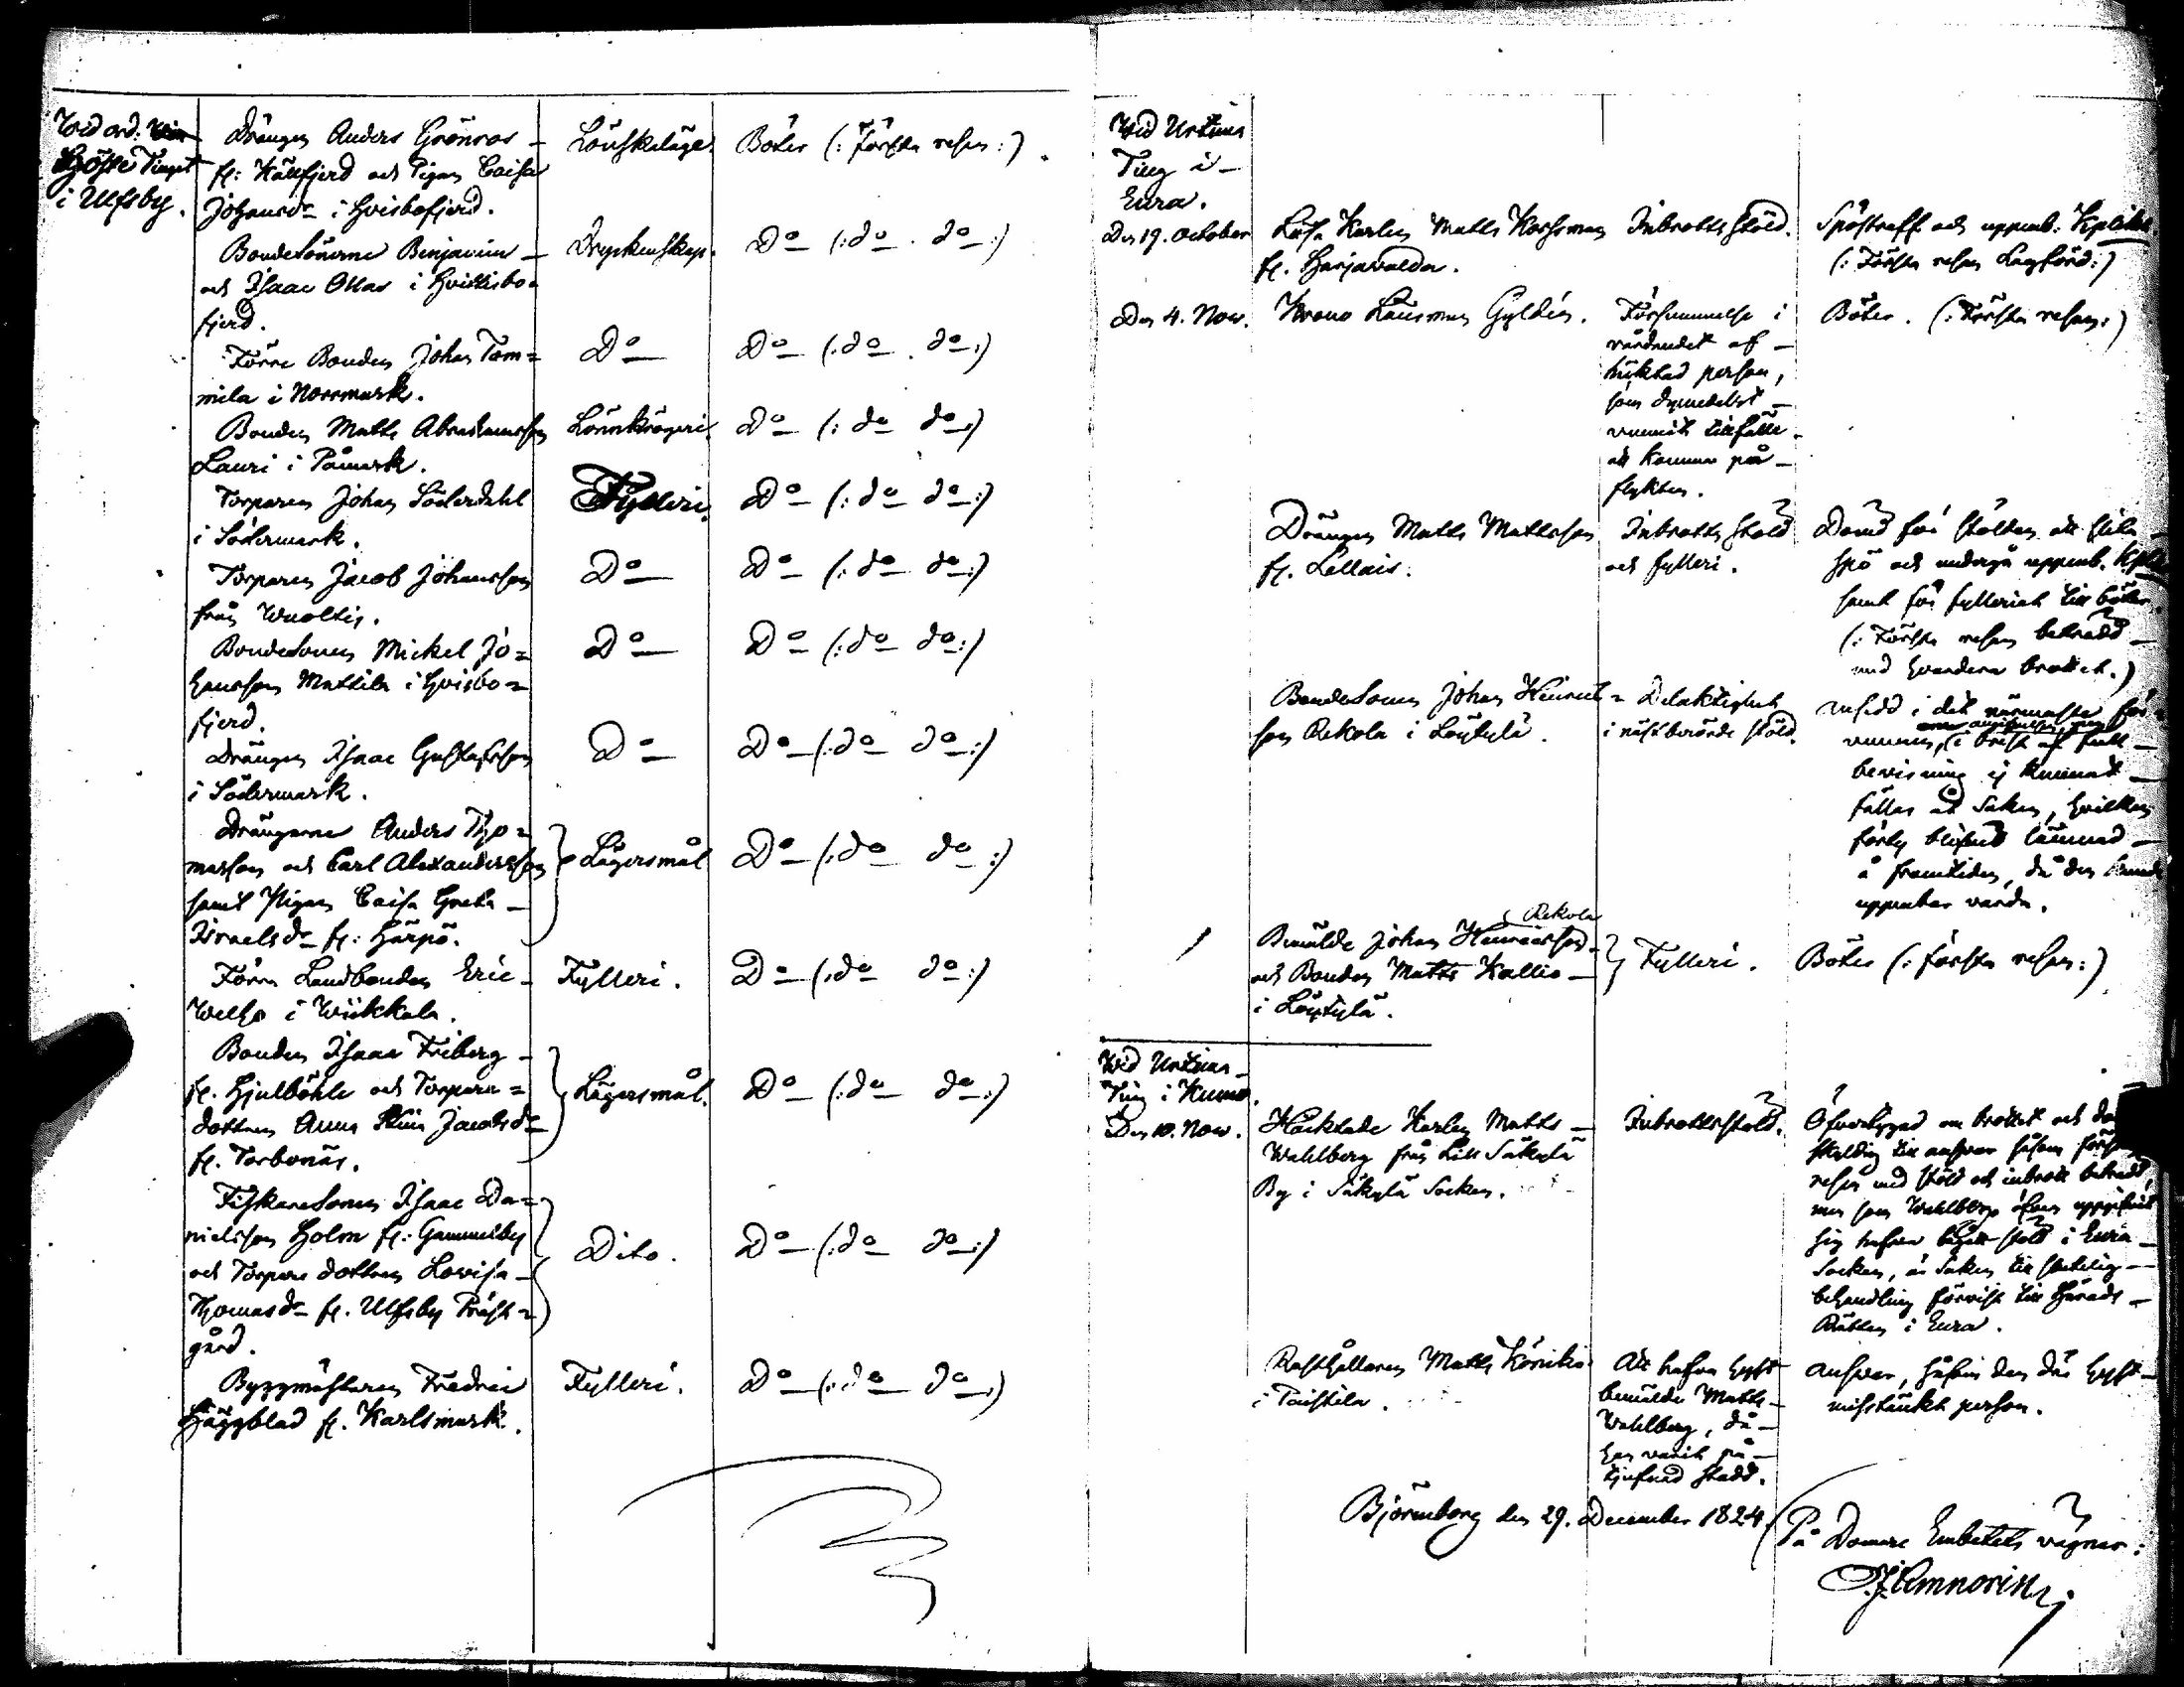 Wid ord.
Höste Tinget
i Ulfsby.
Drängen Anders Grönroos
fr: Källfjerd och Pigan Caisa
Johansdr i Hvisbofjerd.
Lönskaläge.
Böter (: Första resan :).
Bondesönerne Benjamin
och Isaac Ollas i Hvittisbo-
fjerd.
Dryckenskap.
Do (: do. do :)
Förre Bonden Johan Tom=
mila i Norrmark.
Do
Do (: do. do :)
Bonden Matts Abrahamsson
Lauri i Påmark.
Lönnkrögeri.
Do (: do do :)
Torparen Johan Söderdahl
i Södermark.
Fylleri.
Do (: do do :)
Torparen Jacob Johansson
från Wuoltis.
Do
Do (: do do :)
Bondesonen Mickel Jo=
hansson Mattila i Hvisbo=
fjerd.
Do
Do (: do do :)
Drängen Isaac Gustafsson
i Södermark.
Do
Do (: do do :)
Drängarne Anders Tho=
masson och Carl Alexandersson
samt Pigan Caisa Greta
Israelsdr fr: Härpö.
Lägersmål
Do (: do do :)
Förra Landbonden Eric
Welho i Wiikkala.
Fylleri.
Do (: do do :)
Bonden Isaac Friberg
fr. Hjulböhle och Torpare=
dottren Anna Stina Jacobsdr
fr. Torbonäs.
Lägersmål.
Do (: do do :)
Fiskaresonen Isaac Da=
nielsson Holm fr: Gammelby
och Torpare dottren Lovisa
Thomasdr fr. Ulfsby Präst=
gård.
Dito.
Do (: do do :)
Byggmästaren Fredric
Häggblad fr. Karlsmark.
Fylleri.
Do (: do do :)
Wid Urtima
Ting i
Eura.
Den 19. October
Lösa Karlen Matts Korssman
fr. Harjavalda.
Inbrotts stöld.
Spöstraff och uppenb: Kplikt
(: Första resan Lagförd :)
Den 4. Nov.
Krono Länsman Gyldén.
Försummelse i
vårdandet af
häktad person,
som dymedelst
vunnit tillfälle
att komma på
flykten.
Böter. (: Första resan :)
Drängen Matts Mattsson
fr. Lellais.
Inbrotts stöld
och fylleri.
Dömd för stölden att slita
spö och undergå uppenb. Kplikt
samt för fylleriet till böter.
(: Första resan beträdd
med hvardera brottet.)
Bondesonen Johan Henrics=
son Rekola i Löytylä.
Delaktighet
i näst berörde stöld.
Ansedd i det närmaste för=
vunnen, i brist af full
bevisning ej kunnat
fällas åt saken, hvilken
förty blifvit lämnad
å framtiden, då den kunde
uppenbar varda.
Rekola
Bemälde Johan Henricsson
och Bonden Matts Kallio
i Löytylä.
Fylleri.
Böter (: första resan :)
Wid Urtima
Ting i Kumo.
Den 10. Nov.
Häktade Karlen Matts
Wahlberg från Lill Säkylä
By i Säkylä Socken.
Inbrottsstöld.
Öfvertygad om brottet och
skyldig till answar såsom
resan med stöld och inbrott beträdd,
men som Wahlberg äfven uppgifvit
sig hafva begått stöld i Eura
Socken, är saken till slutelig
behandling förvist till Härads
Rätten i Eura.
Rusthållaren Matts Köniki
i Paistila.
Att hafva hyst
bemälde Matts
Wahlberg, då
han varit på
tjufnad stadd.
Answar, såsom den där hyst
misstänkt person.
Björneborg den 29. December 1824.
På Domare Embetets vägnar: